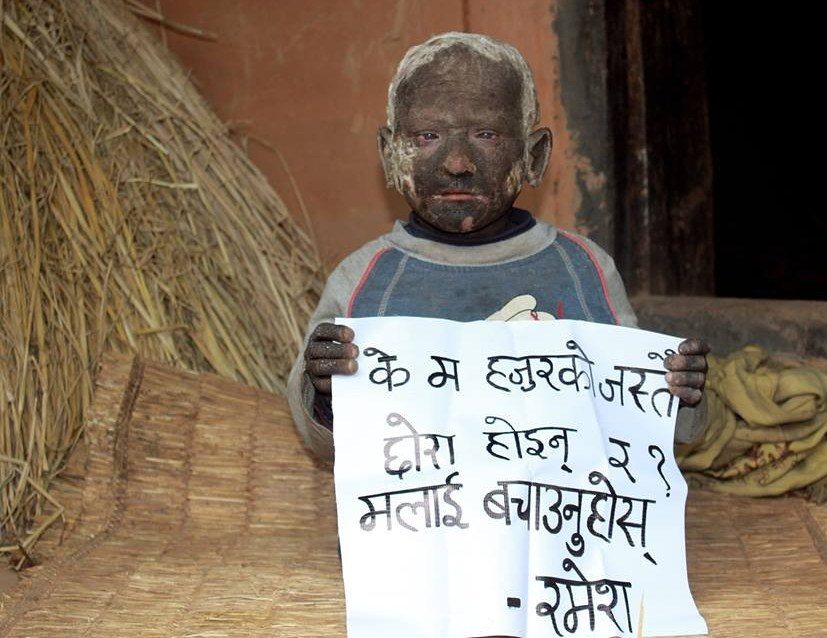 के म हजुरको जस्तै
छोरा होइन् र ?
मलाई बचाउनुहोस्
- रमेश